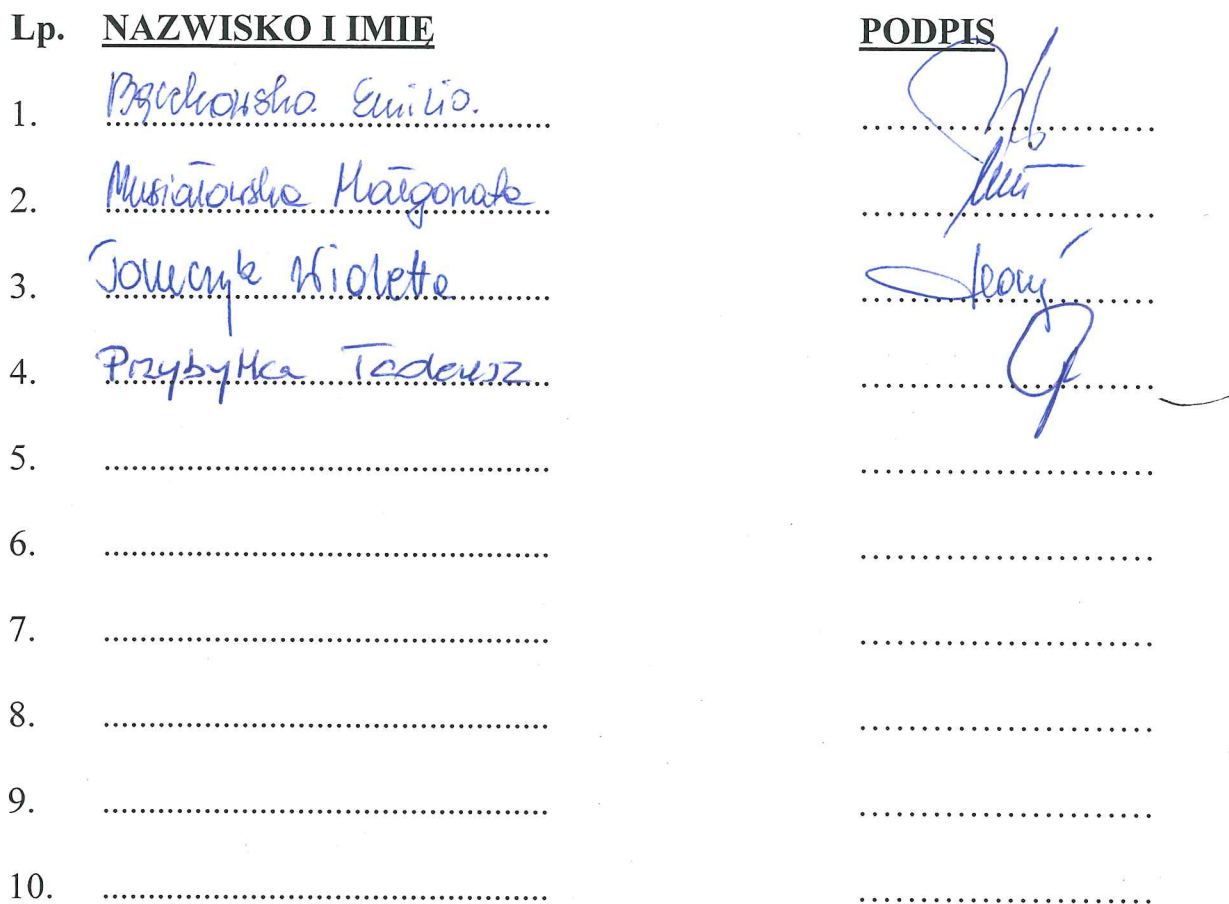 Lp. NAZWISKO I IMIĘ PODPIS
1. Bączkowska Emilia.
2. Musiałowska Małgorzata
3. Tomczyk Wioletta
4. Przybyłka Tadeusz
5.
6.
7.
8.
9.
10.